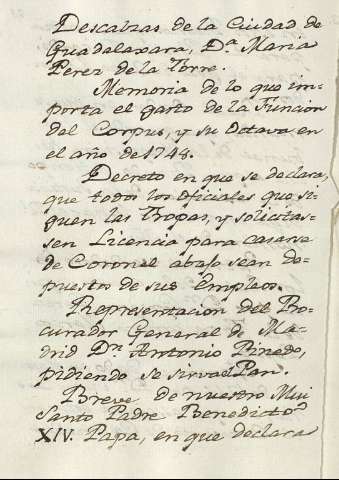 Descalzas de la Ciudad de
Guadalaxara, D.ª Maria
Perez de la Torre.
Memoria de lo que im-
porta el gasto de la Funcion
del Corpus, y su Octava en
el año de 1748.
Decreto en que se declara,
que todos los Oficiales que si-
guen las Tropas, y solicitas-
sen Licencia para casarse
de Coronel abajo sean de-
puesto de sus Empleos.
Representacion del Pro-
curador General de Ma-
drid D.n Antonio Pinedo,
pidiendo se sirva el Pan.
Breve de nuestro Mui
Santo Padre Benedicto
XIV. Papa, en que declara